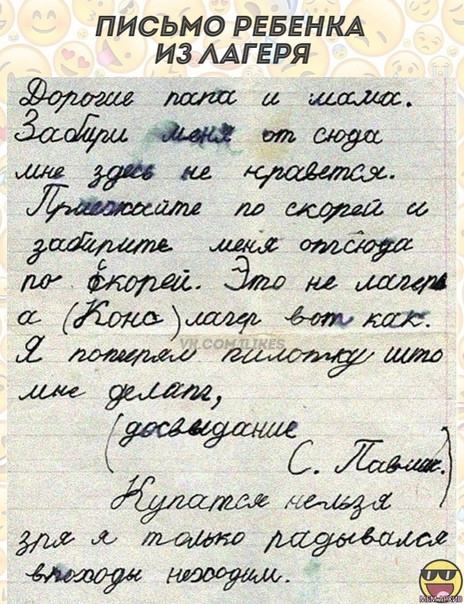 ПИСЬМО РЕБЕНКА
ИЗ ЛАГЕРЯ
Дорогие папа и мама.
Забири меня от сюда
мне здесь не нравется.
Приезжайте по скорей и
забирите меня отсюда
по скорей. Это не лагерь
а (Конс) лагер вот как.
VK.COM/LIKES
Я потерял пилотку што
мне делать,
(досвидание
С. Павлик.)
Купатся нельзя
зря я только радывался
впоходы неходим.